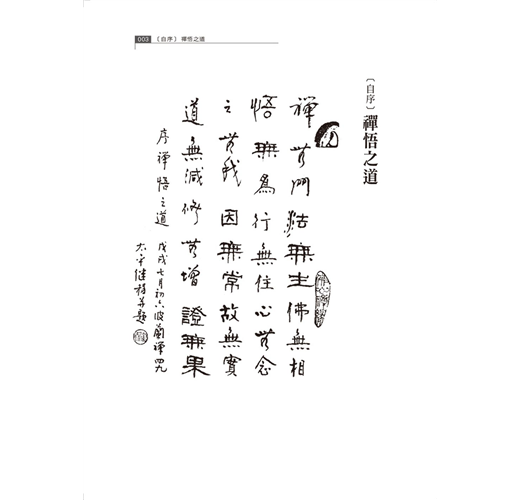 003 〔自序〕 禪悟之道
〔自序〕禪悟之道
禪無門法無生佛無相
悟無為行無住心無念
之無我因無常故無實
道無減修無增證無果
序禪悟之道
戊戌七月初六波蘭禪四九
太平继程題